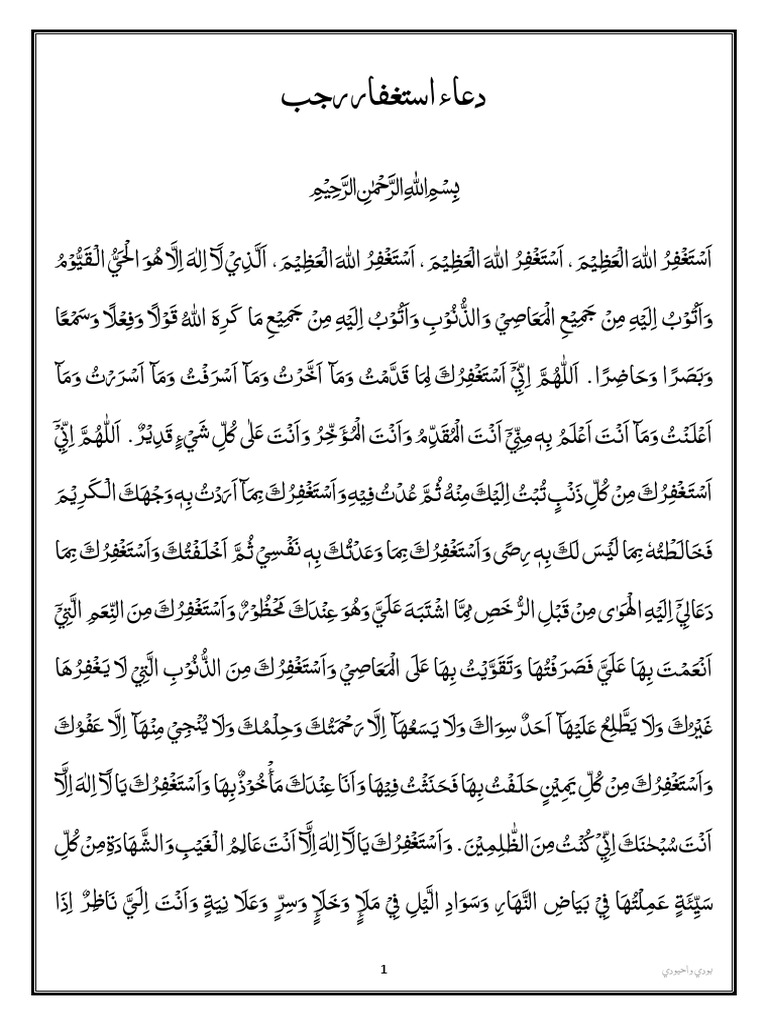 دعاء استغفار رجب
بِسْمِ اللهِ الرَّحْمٰنِ الرَّحِيْمِ
اَسْتَغْفِرُ اللهَ الْعَظِيْمَ، اَسْتَغْفِرُ اللهَ الْعَظِيْمَ، اَسْتَغْفِرُ اللهَ الْعَظِيْمَ، اَلَّذِيْ لَآ اِلٰهَ اِلَّا هُوَ الْحَيُّ الْقَيُّوْمُ
وَاَتُوْبُ اِلَيْهِ مِنْ جَمِيْعِ الْمَعَاصِيْ وَالذُّنُوْبِ وَاَتُوْبُ اِلَيْهِ مِنْ جَمِيْعِ مَا كَرِهَ اللهُ قَوْلًا وَفِعْلًا وَسَمْعًا
وَبَصَرًا وَحَاضِرًا. اَللّٰهُمَّ اِنِّيْٓ اَسْتَغْفِرُكَ لِمَا قَدَّمْتُ وَمَآ اَخَّرْتُ وَمَآ اَسْرَفْتُ وَمَآ اَسْرَرْتُ وَمَآ
اَعْلَنْتُ وَمَآ اَنْتَ اَعْلَمُ بِهٖ مِنِّيْٓ اَنْتَ الْمُقَدِّمُ وَاَنْتَ الْمُؤَخِّرُ وَاَنْتَ عَلٰى كُلِّ شَيْءٍ قَدِيْرٌ. اَللّٰهُمَّ اِنِّيْٓ
اَسْتَغْفِرُكَ مِنْ كُلِّ ذَنْبٍ تُبْتُ اِلَيْكَ مِنْهُ ثُمَّ عُدْتُ فِيْهِ وَاَسْتَغْفِرُكَ بِمَآ اَرَدْتُ بِهٖ وَجْهَكَ الْكَرِيْمَ
فَخَالَطْتُهٗ بِمَا لَيْسَ لَكَ بِهٖ رِضًى وَاَسْتَغْفِرُكَ بِمَا وَعَدْتُكَ بِهٖ نَفْسِيْ ثُمَّ اَخْلَفْتُكَ وَاَسْتَغْفِرُكَ بِمَا
دَعَالِيْٓ اِلَيْهِ الْهَوٰى مِنْ قَبْلِ الرُّخَصِ مِمَّا اشْتَبَهَ عَلَيَّ وَهُوَ عِنْدَكَ مَحْظُوْرٌ وَاَسْتَغْفِرُكَ مِنَ النِّعَمِ الَّتِيْٓ
اَنْعَمْتَ بِهَا عَلَيَّ فَصَرَفْتُهَا وَتَقَوَّيْتُ بِهَا عَلَى الْمَعَاصِيْ وَاَسْتَغْفِرُكَ مِنَ الذُّنُوْبِ الَّتِيْ لَا يَغْفِرُهَا
غَيْرُكَ وَلَا يَطَّلِعُ عَلَيْهَآ اَحَدٌ سِوَاكَ وَلَا يَسَعُهَآ اِلَّا رَحْمَتُكَ وَحِلْمُكَ وَلَا يُنْجِيْ مِنْهَآ اِلَّا عَفْوُكَ
وَاَسْتَغْفِرُكَ مِنْ كُلِّ يَمِيْنٍ حَلَفْتُ بِهَا فَحَنَثْتُ فِيْهَا وَاَنَا عِنْدَكَ مَأْخُوْذٌ بِهَا وَاَسْتَغْفِرُكَ يَا لَآ اِلٰهَ اِلَّآ
اَنْتَ سُبْحٰنَكَ اِنِّيْ كُنْتُ مِنَ الظّٰلِمِيْنَ. وَاَسْتَغْفِرُكَ يَا لَآ اِلٰهَ اِلَّآ اَنْتَ عَالِمُ الْغَيْبِ وَالشَّهَادَةِ مِنْ كُلِّ
سَيِّئَةٍ عَمِلْتُهَا فِيْ بَيَاضِ النَّهَارِ وَسَوَادِ الَّيْلِ فِيْ مَلَإٍ وَخَلَإٍ وَسِرٍّ وَعَلَا نِيَةٍ وَاَنْتَ اِلَيَّ نَاظِرٌ اِذَا
1
يودي واحيودي